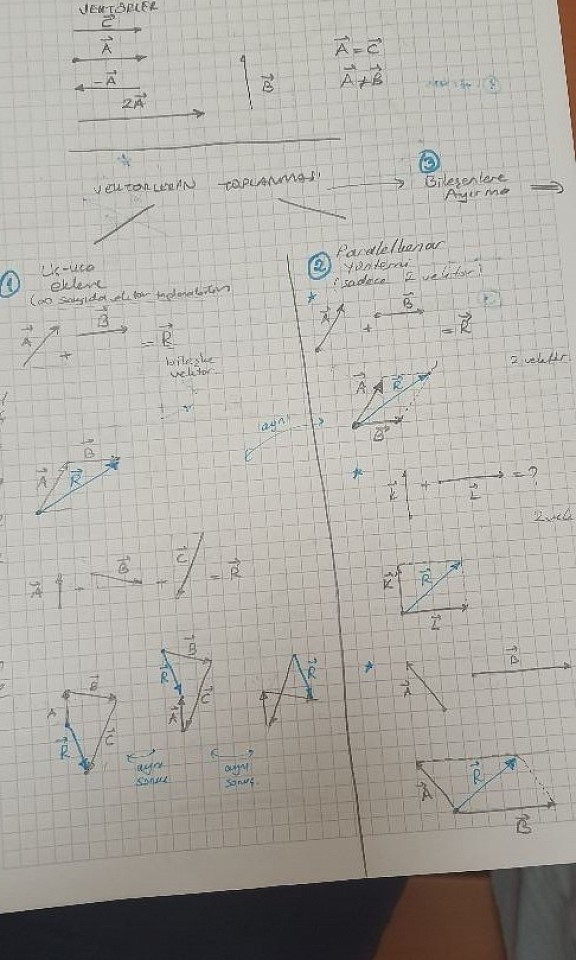 VEKTÖRLER
C⃗
A⃗
-A⃗
2A⃗
B⃗
A⃗ = C⃗
A⃗ ≠ B⃗
TOPLANMASI
3
Bileşenlere
Ayırma
1
Uc-uca
ekleme
(∞ sayıda vektör toplanabilir)
A⃗ + B⃗ = R⃗
bileşke
vektör
A⃗ B⃗ R⃗
A⃗ + B⃗ + C⃗ = R⃗
A B⃗ C⃗ R⃗
R⃗ B⃗ A⃗ C⃗
R⃗
aynı
sonuç
aynı
sonuç
aynı
2
Paralelkenar
Yöntemi
(sadece 2 vektör)
A⃗ + B⃗ = R⃗
2 vektör
A⃗ R⃗
B⃗
K⃗ + L⃗ = ?
K⃗ R⃗
L⃗
A⃗ B⃗
A⃗ R⃗
B⃗